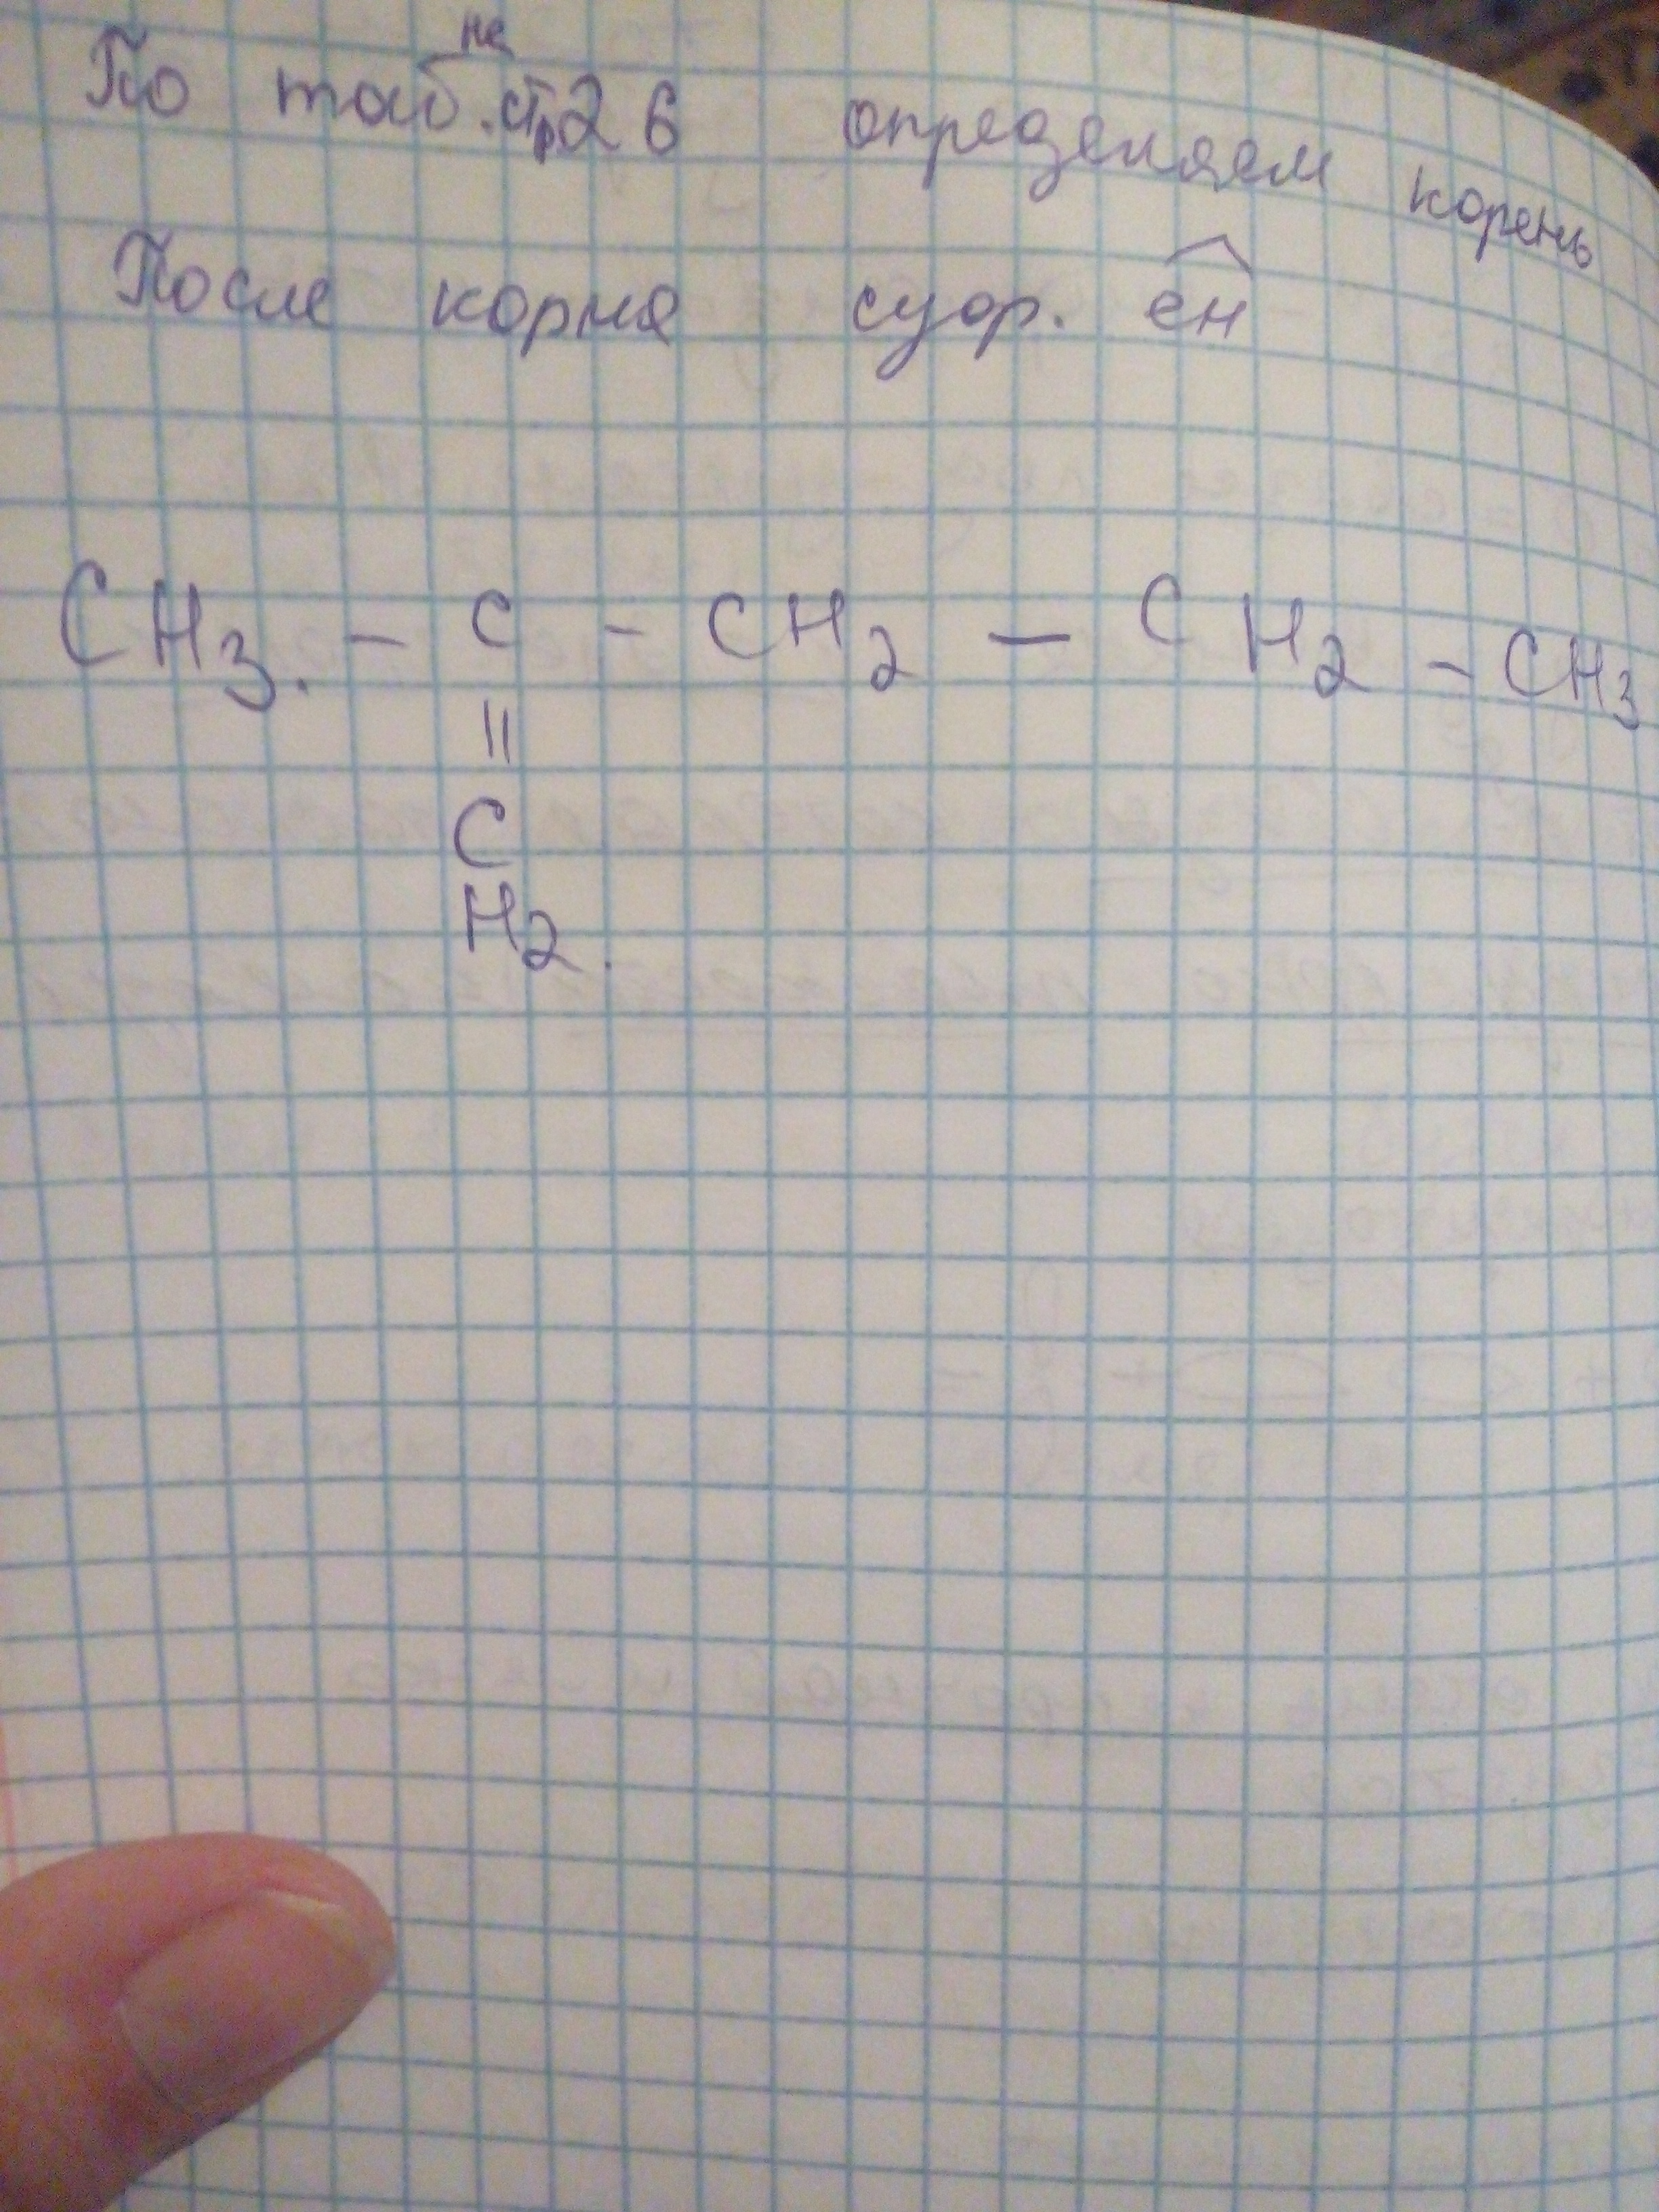 По таб. на стр 26 определяем корень
После корня суф. ен
CH3. - C - CH2 - CH2 - CH3
||
C
H2.